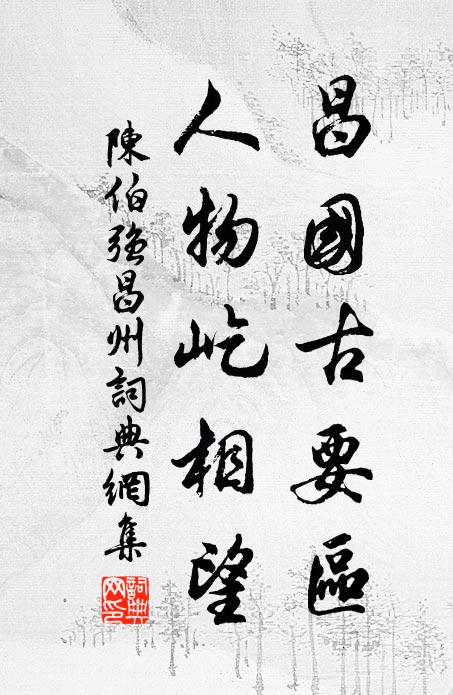 昌國古要區
人物屹相望
陳伯强昌州詞典網集
詞典
网印